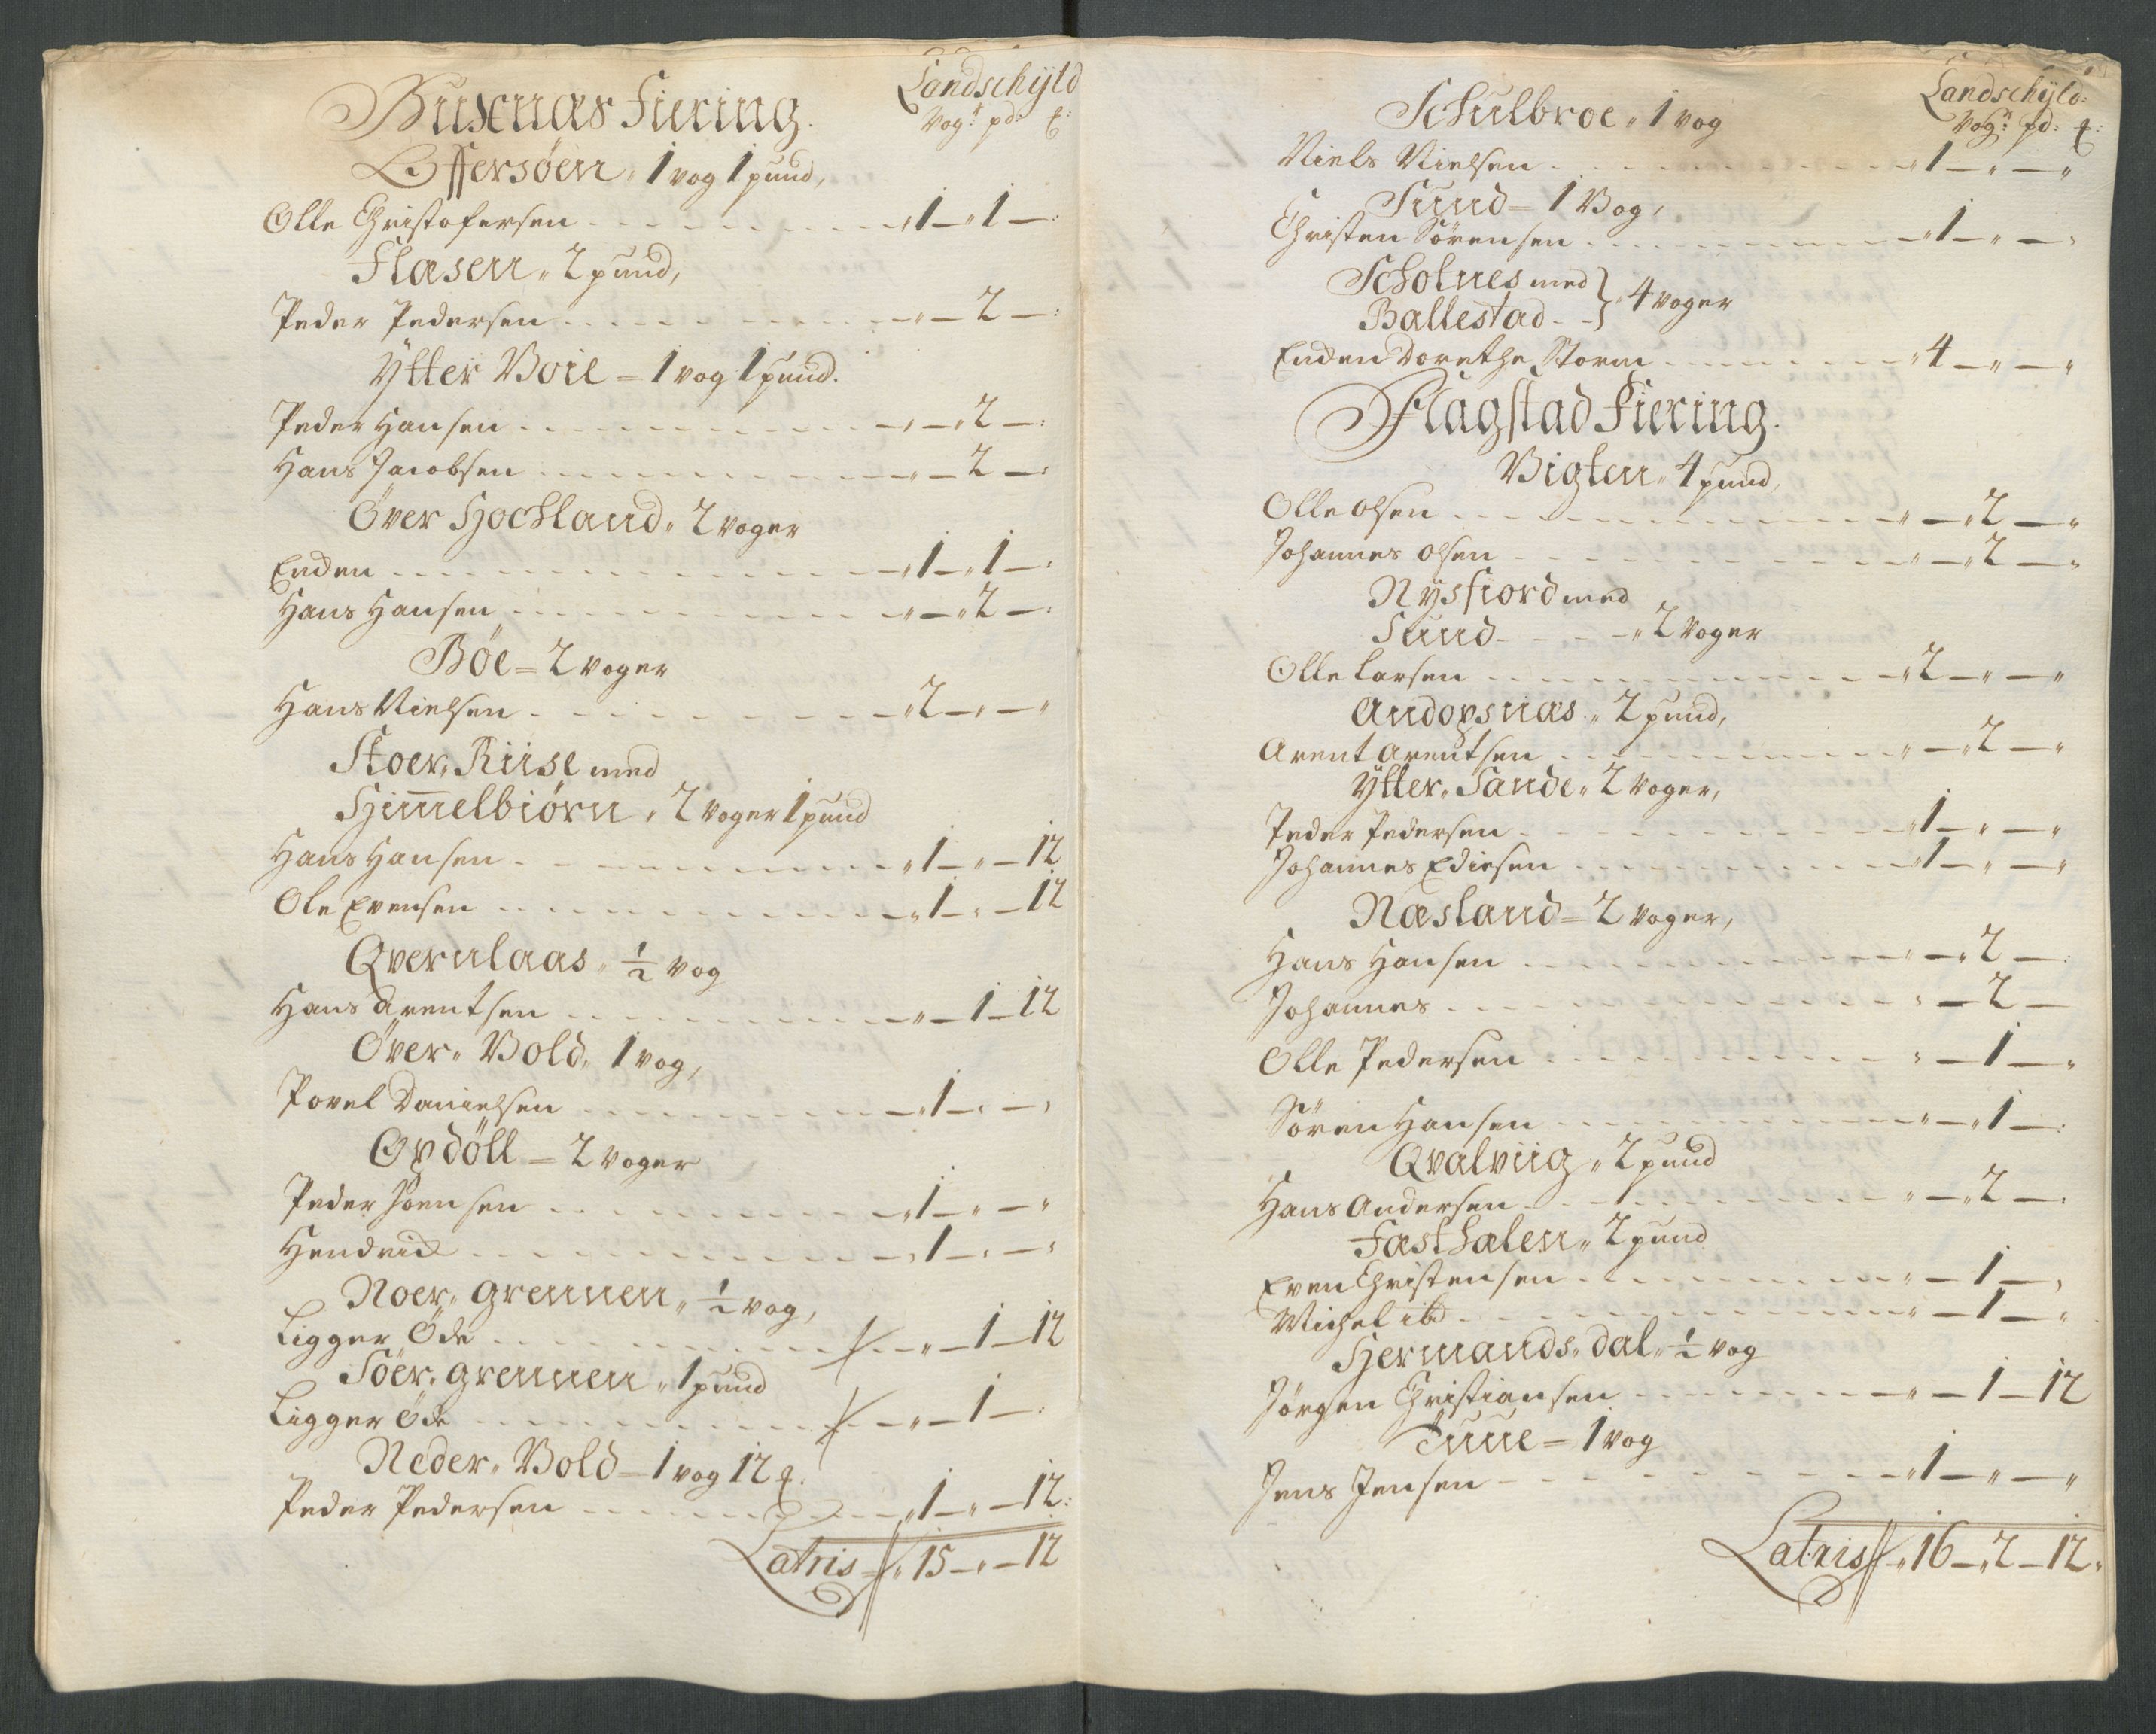 Buxnæs Fiering.
Landschÿld
Vog: pd: ꝉ:
Offersöen „ 1 vog 1 pund,
Olle Christofersen „ 1 „ 1 —
Flæsen „ 2 pund,
Peder Pedersen „ — 2 —
Ÿtter Boie = 1 vog 1 pund.
Peder Hansen — 2 —
Hans Jacobsen „ — 2 —
Över Hochland „ 2 voger
Enchen „ 1 „ 1 —
Hans Hansen „ — „ 2 —
Böe = 2 voger
Hans Nielsen „ 2 — „ — „
Stoer, Riise med
Himmelbiörn „ 2 voger 1 pund
Hans Hansen „ 1 — „ — 12
Ole Evensen „ 1 — „ — 12
Qvernlaas „ ½ vog
Hans Arentsen „ — 1 — 12
Över„ Bold „ 1 vog,
Povel Danielsen „ 1 — „ —
Opdöll = 2 voger
Peder Joensen „ 1 — „ — „
Hendrich „ 1 — „ — „
Noer„ grennen „ ½ vog,
Ligger Öde „ — 1 — 12
Söer, grennen „ 1 pund
Ligger Öde „ — 1 —
Neder„ Bold = 1 vog 12 ꝉ.
Peder Pedersen „ 1 — „ — 12
Latris „ 15 — „ — 12
Landschÿld:
Vog: pd: ꝉ:
Schulbroe „ 1 vog
Niels Nielsen „ 1 — „ — „
Sund = 1 Vog,
Christen Sörensen „ 1 — „ —
Scholnes med
Ballestad } 4 voger
Enchen Dorethe Storm „ 4 — „ — „
Flagstad Fiering.
Vigten „ 4 pund,
Olle Olsen „ — „ 2 — „
Johannes Olsen „ — „ 2 — „
Nÿsfiord med
Sund „ 2 voger
Olle Larsen „ 2 — „ — „
Andopsnæs „ 2 pund,
Arent Arentsen „ — „ 2 — „
Ÿtter„ Sande „ 2 voger,
Peder Pedersen „ 1 — „ — „
Johannes Edissen „ 1 — „ — „
Næsland = 2 voger,
Hans Hansen „ — „ 2 —
Johannes „ — 2 —
Olle Pedersen „ — 1 — „
Sören Hansen „ — „ 1 —
Qvalviig „ 2 pund
Hans Andersen „ — „ 2 —
Fæsthælen „ 2 pund
Even Christensen „ — 1 —
Michel ibd „ — 1 — „
Hermands„ dal „ ½ vog
Jörgen Christiansen „ — 1 — 12
Tuue = 1 vog
Jens Jensen „ 1 — „ — „
Latris „ 16 — „ 2 — 12